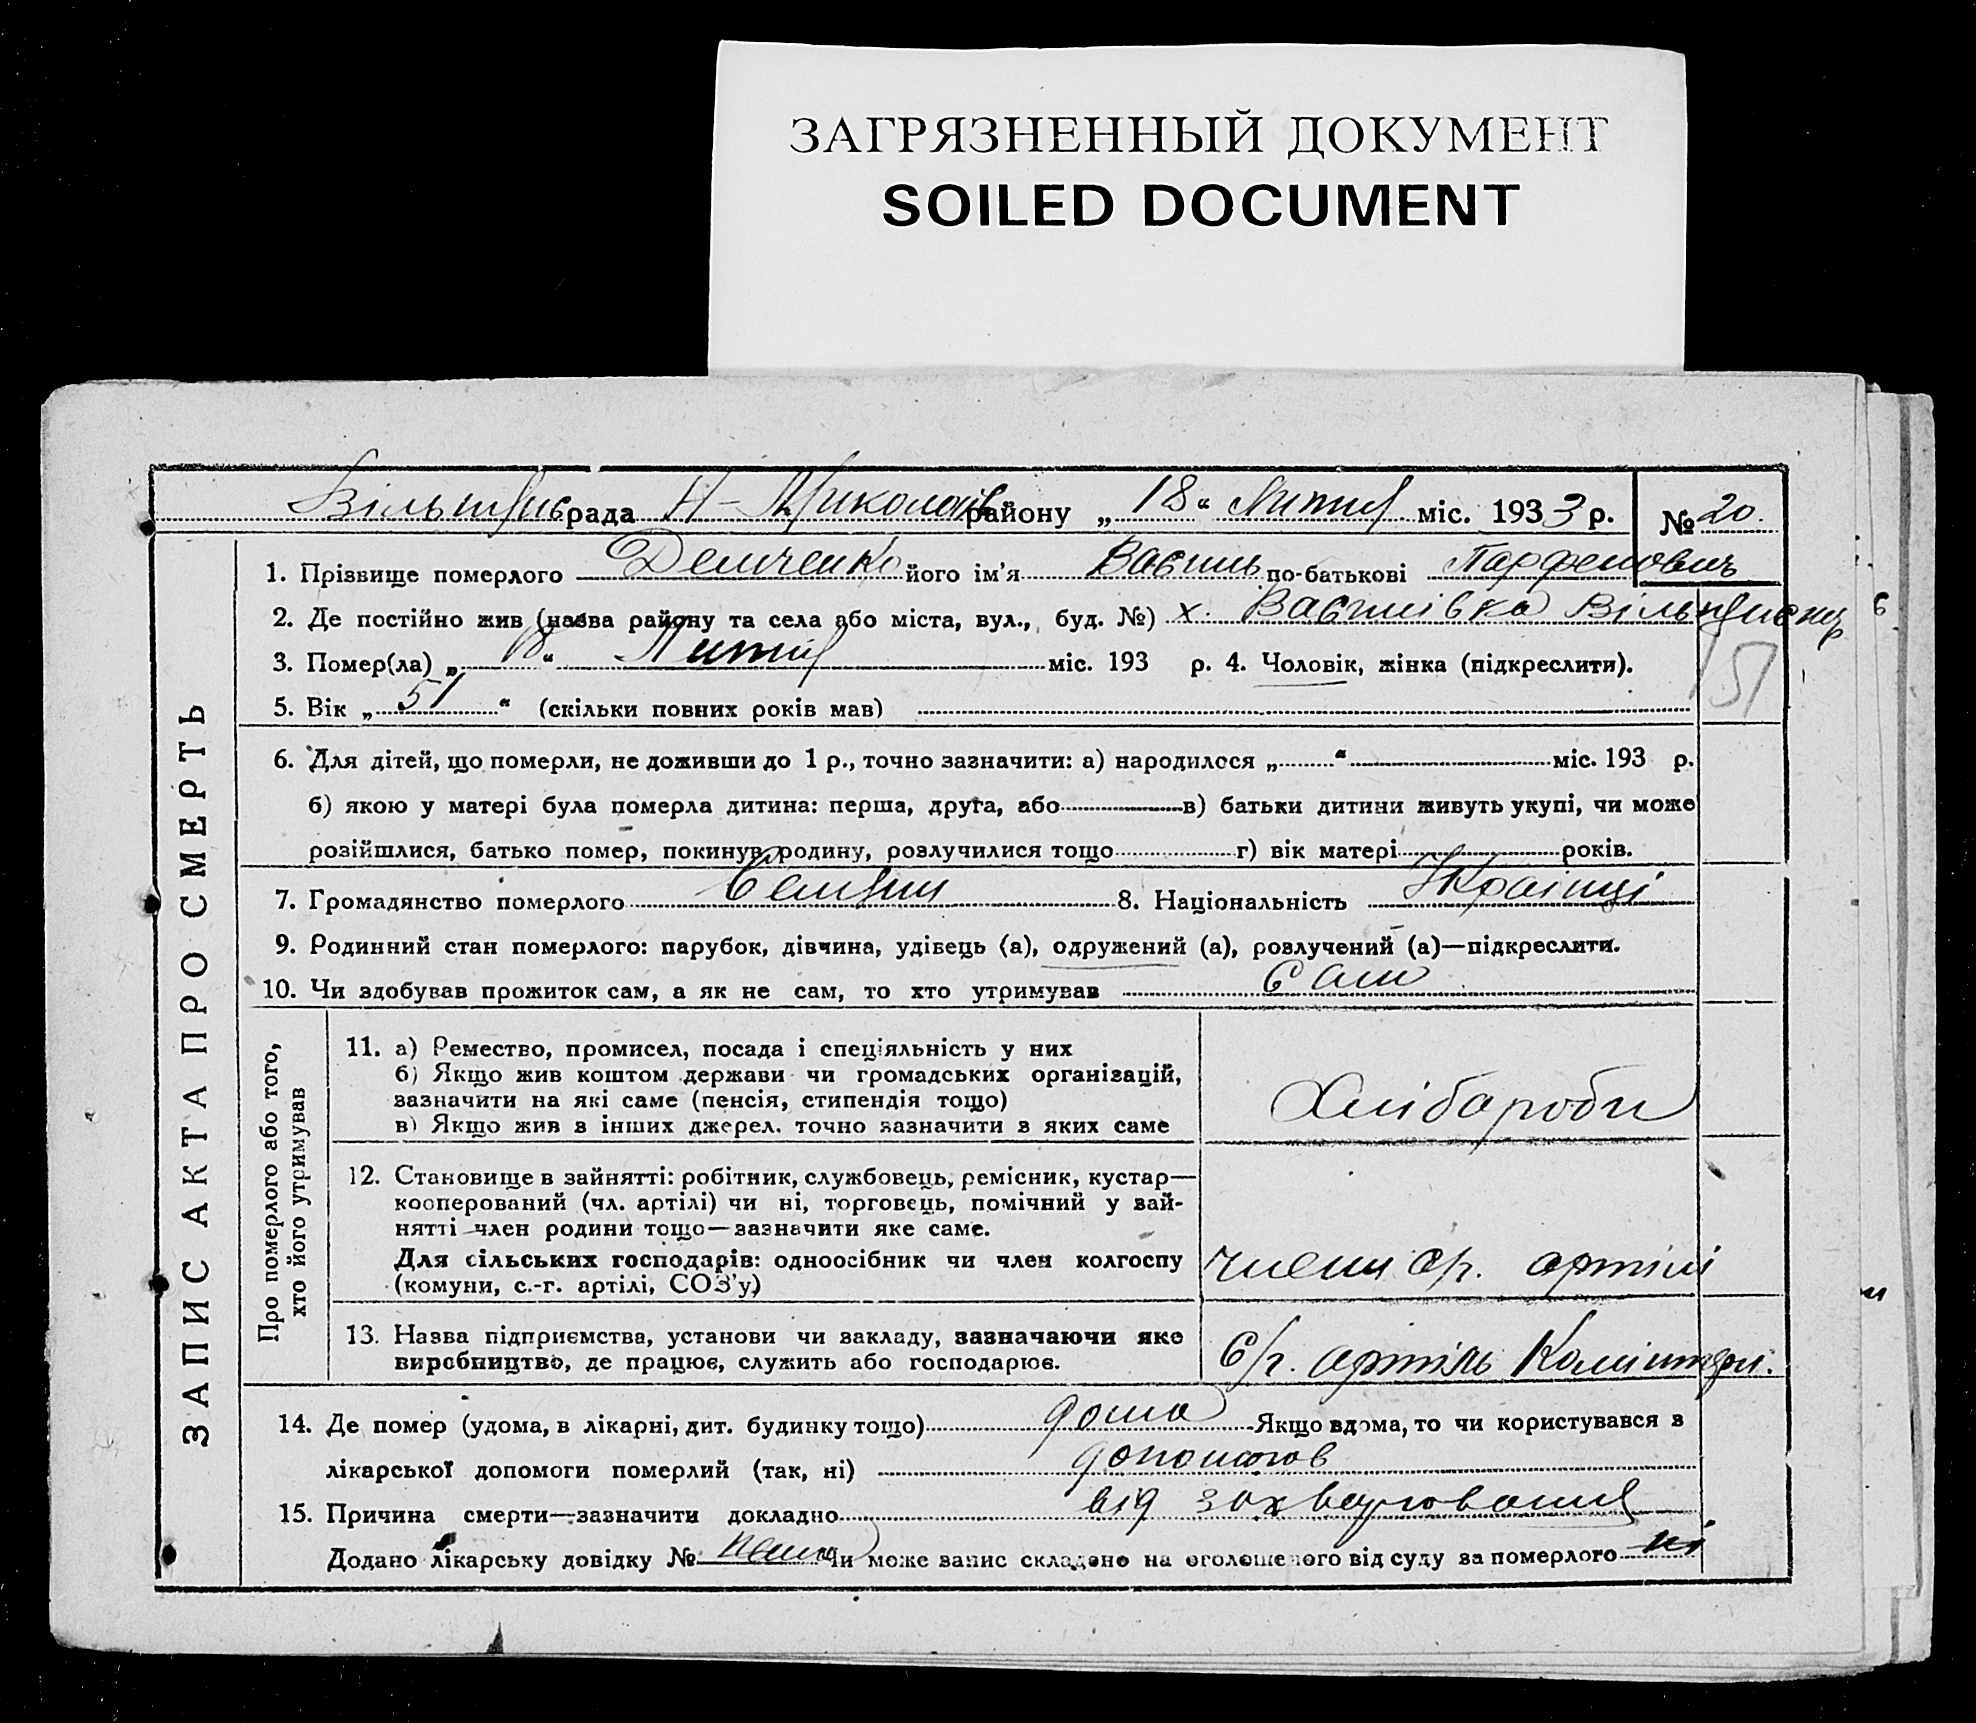 ЗАГРЯЗНЕННЫЙ ДОКУМЕНТ
SOILED DOCUMENT
рада Н-Миколаїв району „18“ Лютий міс. 1933 р. № 20.
ЗАПИС АКТА ПРО СМЕРТЬ
1. Прізвище померлого Демченко його ім'я Василь по-батькові Парфенович
2. Де постійно жив (назва району та села або міста, вул., буд. №) х. Василівка
3. Помер(ла) „18“ Лютий міс. 193 р. 4. Чоловік, жінка (підкреслити).
5. Вік „51“ (скільки повних років мав)
51
6. Для дітей, що померли, не доживши до 1 р., точно зазначити: а) народилося „ “ міс. 193 р.
б) якою у матері була померла дитина: перша, друга, або в) батьки дитини живуть укупі, чи може
розійшлися, батько помер, покинув родину, розлучилися тощо г) вік матері років.
7. Громадянство померлого 8. Національність Країнці
9. Родинний стан померлого: парубок, дівчина, удівець (а), одружений (а), розлучений (а)—підкреслити.
10. Чи здобував прожиток сам, а як не сам, то хто утримував сам
Про померлого або того,
хто його утримував
11. а) Ремество, промисел, посада і спеціяльність у них
б) Якщо жив коштом держави чи громадських організацій,
зазначити на які саме (пенсія, стипендія тощо)
в) Якщо жив з інших джерел, точно зазначити з яких саме
Хлібароби
12. Становище в зайнятті: робітник, службовець, ремісник, кустар—
кооперований (чл. артілі) чи ні, торговець, помічний у зай-
нятті член родини тощо—зазначити яке саме.
Для сільських господарів: одноосібник чи член колгоспу
(комуни, с.-г. артілі, СОЗ'у)
член с/г. артілі
13. Назва підприємства, установи чи закладу, зазначаючи яке
виробництво, де працює, служить або господарює.
С/г. артіль Комінтерн.
14. Де помер (удома, в лікарні, дит. будинку тощо) дома Якщо вдома, то чи користувався з
лікарської допомоги померлий (так, ні)
15. Причина смерти—зазначити докладно від захварювання
Додано лікарську довідку № нема Чи може запис складено на оголошеного від суду за померлого ні